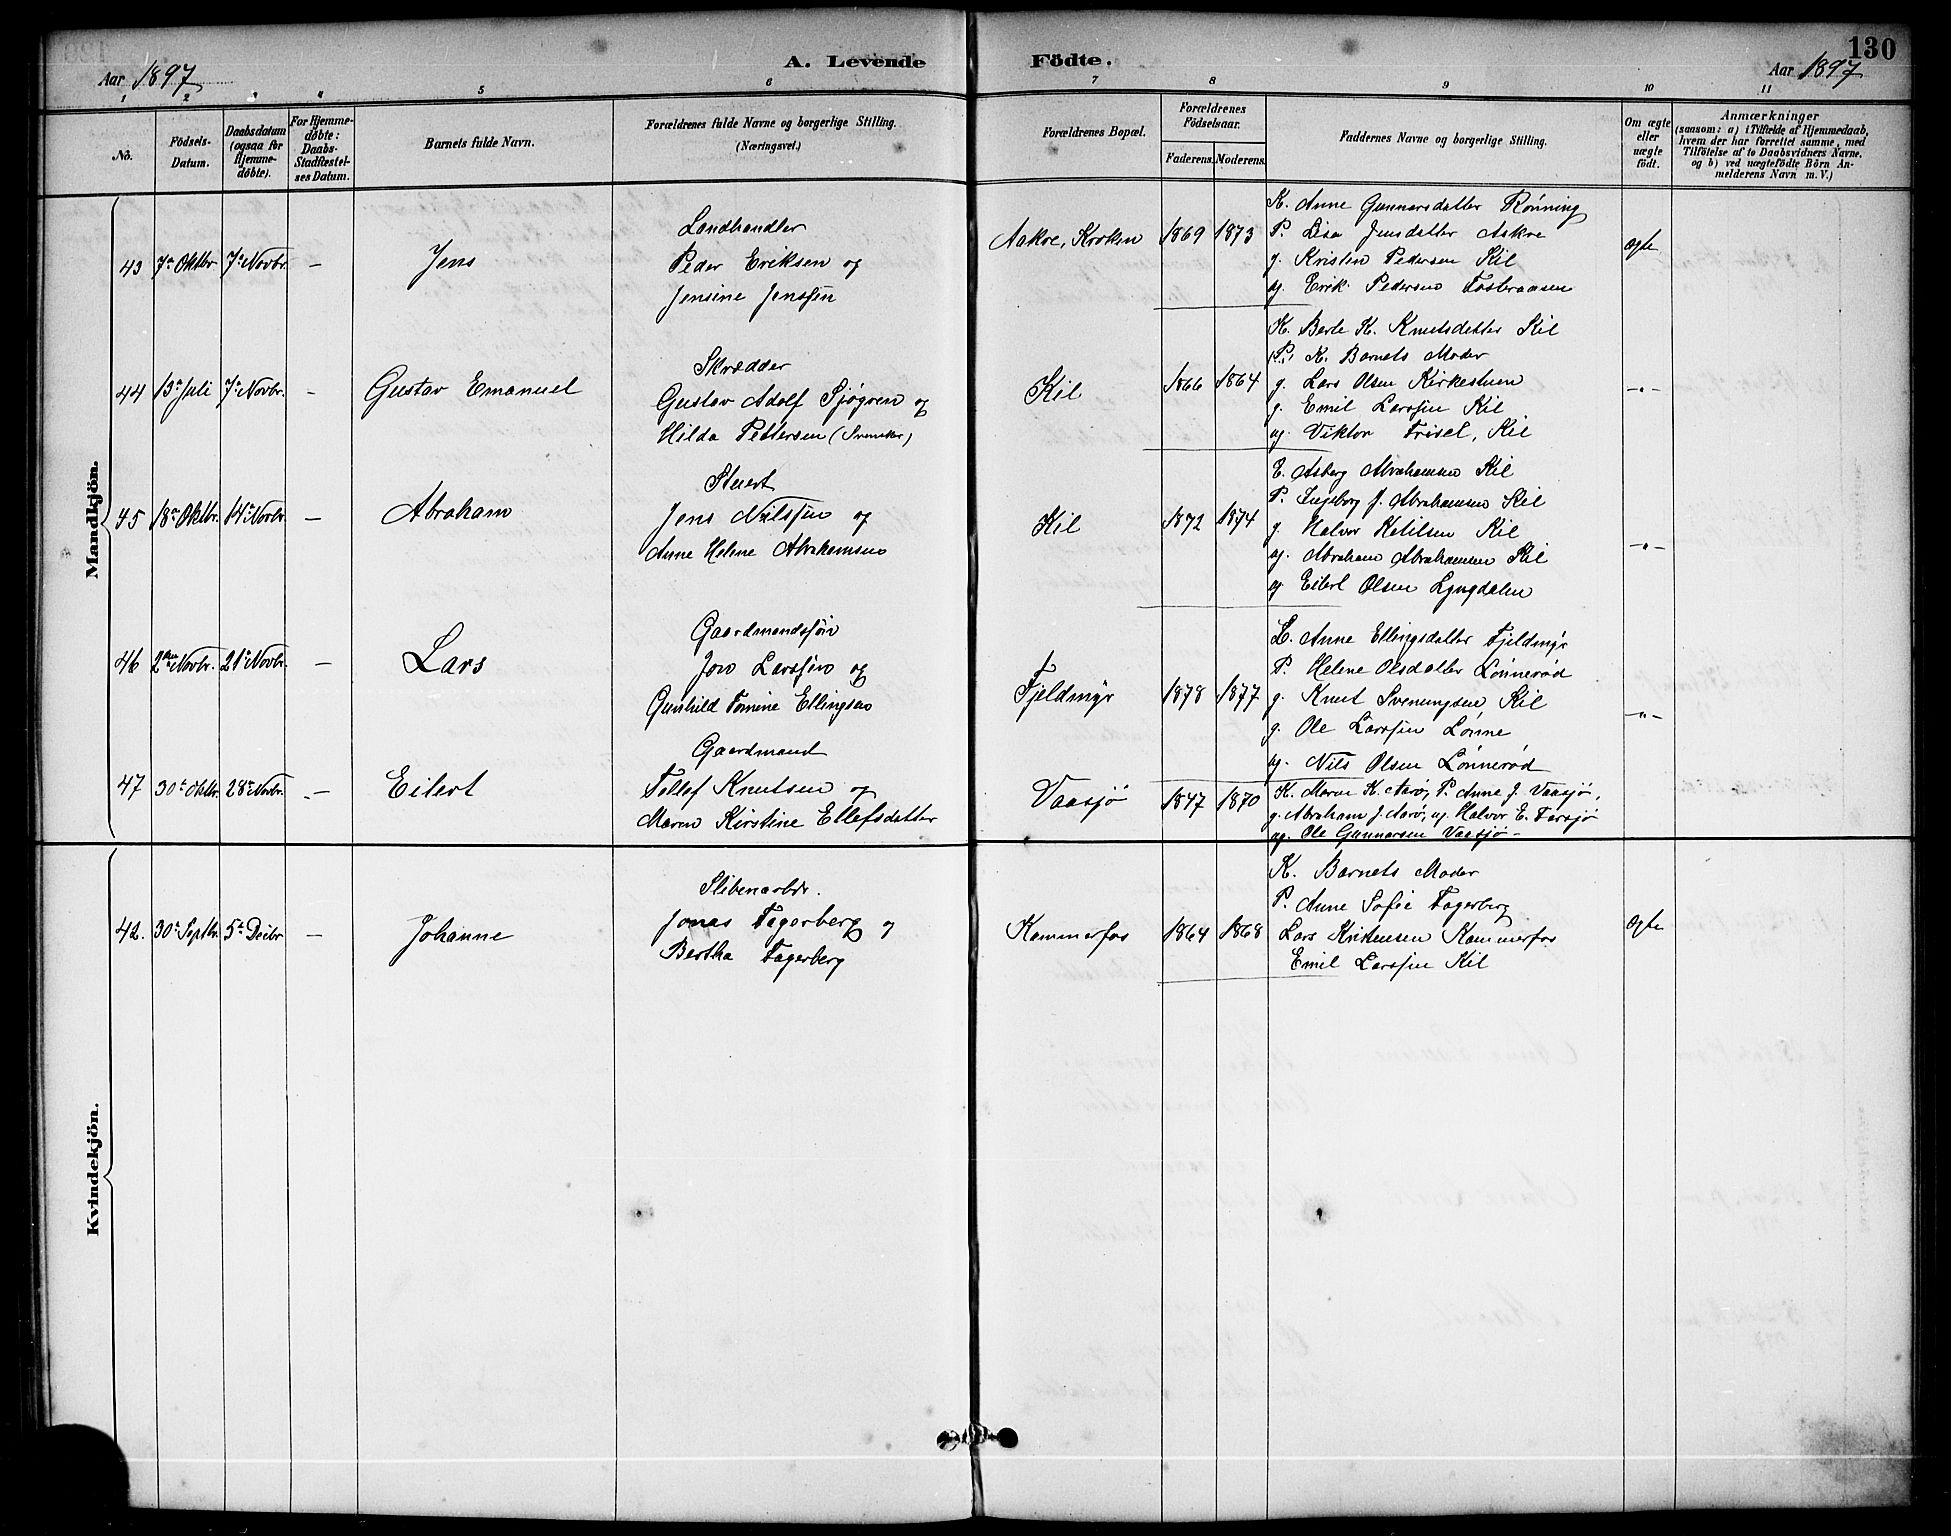 130
Aar 1897
A. Levende Födte.
Aar 1897
1 2 3 4 5 6 7 8 9 10 11
No.
Födsels-Datum.
Daabsdatum (ogsaa for Hjemme-døbte).
For Hjemme-døbte: Daabs-Stadfæstel-ses Datum.
Barnets fulde Navn.
Forældrenes fulde Navne og borgerlige Stilling.
(Næringsvei.)
Forældrenes Bopæl.
Forældrenes Födselsaar.
Faderens. Moderens.
Faddernes Navne og borgerlige Stilling.
Om ægte eller uægte födt.
Anmærkninger
(saasom: a) i Tilfælde af Hjemmedaab,
hvem der har forrettet samme, med
Tilföielse af to Daabsvidners Navne,
og b) ved uægtefödte Börn An-
melderens Navn m. V.)
Mandkjön.
43 7de Oktbr. 7de Novbr. —
Jens
Landhandler
Peder Eriksen og
Jensine Jenssen
Aakre, Kroken 1869 1873
K. Anne Gunnarsdatter Rönning
P. Lisa Jensdatter Aakre
g. Kristen Pedersen Kil
ug. Erik Pedersen Fosteraasen
Ægte
44 13de Juli 7de Novbr. —
Gustav Emanuel
Skrædder
Gustav Adolf Sjøgren og
Hilda Pettersen (Svensker)
Kil 1866 1864
K. Berte K. Knutsdatter Kil
(P.) K. Barnets Moder
g. Lars Olsen Kirkestuen
g. Emil Larssen Kil
ug. Viktor Frisel, Kil
—"—
45 18de Oktbr. 14de Novbr. —
Abraham
Stuert
Jens Nilssen og
Anne Helene Abrahamsen
Kil 1872 1874
E. Asberg Abrahamsen Kil
P. Ingeborg J. Abrahamsen Kil
g. Halvor Ketilsen Kil
ug. Abraham Abrahamsen Kil
ug Eilert Olsen Lyngdalen
—"—
46 2den Novbr. 21de Novbr. —
Lars
Gaardmandssøn
Jon Larssen og
Gunhild Tomine Ellingsen
Fjeldmyr 1878 1877
E. Anne Ellingsdatter Fjeldmyr
P. Helene Olsdatter Lønnerød
g. Knut Svenungsen Kil
g. Ole Larssen Lønne
ug. Nils Olsen Lønnerød
—"—
47 30te Oktbr. 28de Novbr. —
Eilert
Gaardmand
Tellef Knutsen og
Maren Kirstine Ellefsdatter
Vaasjø 1847 1870
K. Maren K. Aarø, P. Anne J. Vaasjø,
g. Abraham J. Aarø, ug. Halvor E. Farsjø
ug. Ole Gunnarsen Vaasjø —
Kvindekjön.
42. 30te Septbr. 5te Decbr. —
Johanne
Sliberiarbdr.
Jonas Fagerberg og
Bertha Fagerberg
Kammerfos 1864 1868
K. Barnets Moder
P. Anne Sofie Fagerberg
Lars Kristensen Kammerfos
Emil Larssen Kil
Ægte